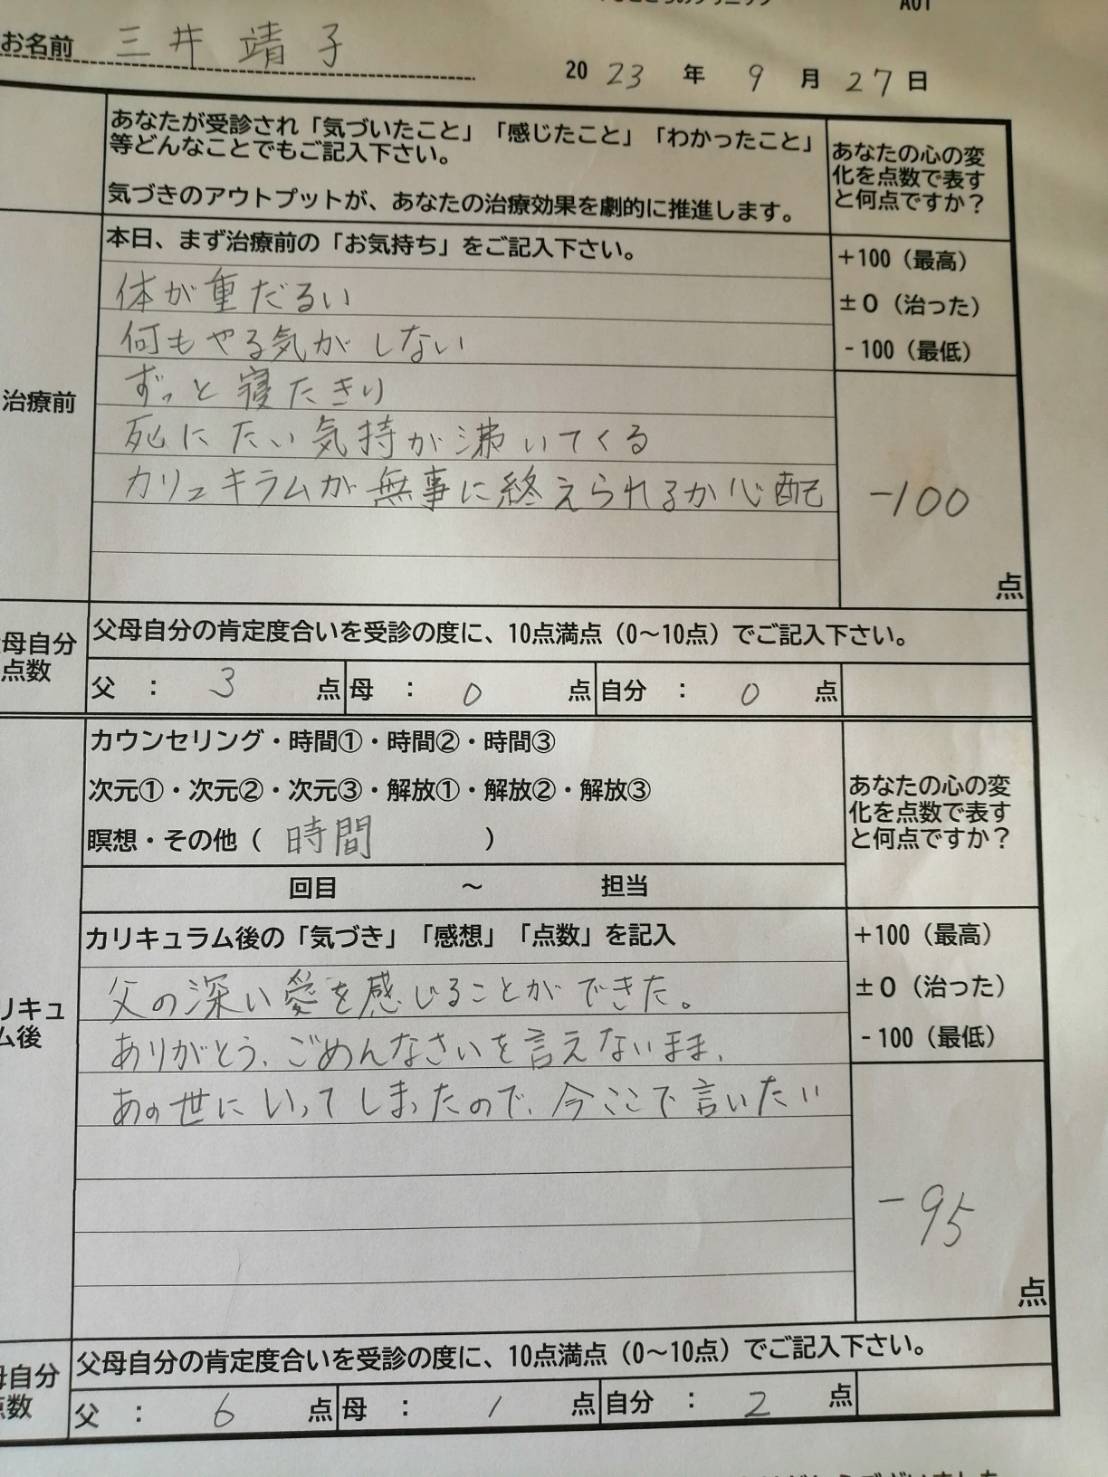 A01
お名前 三井 靖子
2023年 9月 27日
あなたが受診され「気づいたこと」「感じたこと」「わかったこと」
等どんなことでもご記入下さい。
気づきのアウトプットが、あなたの治療効果を劇的に推進します。
あなたの心の変
化を点数で表す
と何点ですか？
本日、まず治療前の「お気持ち」をご記入下さい。
+100（最高）
±0（治った）
-100（最低）
治療前
体が重だるい
何もやる気がしない
ずっと寝たきり
死にたい気持が沸いてくる
カリュキラムが無事に終えられるか心配
-100
点
母自分
点数
父母自分の肯定度合いを受診の度に、10点満点（0～10点）でご記入下さい。
父 ： 3 点 母 ： 0 点 自分 ： 0 点
カウンセリング・時間①・時間②・時間③
次元①・次元②・次元③・解放①・解放②・解放③
瞑想・その他（ 時間 ）
あなたの心の変
化を点数で表す
と何点ですか？
回目 ～ 担当
カリキュラム後の「気づき」「感想」「点数」を記入
+100（最高）
±0（治った）
-100（最低）
リキュ
ム後
父の深い愛を感じることができた。
ありがとう、ごめんなさいを言えないまま、
あの世にいってしまったので、今ここで言いたい
-95
点
母自分
点数
父母自分の肯定度合いを受診の度に、10点満点（0～10点）でご記入下さい。
父 ： 6 点 母 ： 1 点 自分 ： 2 点